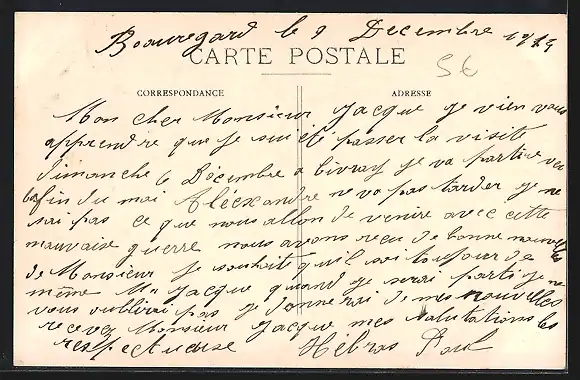 Beauregard le 9 Decembre 1914
CARTE POSTALE
5€
CORRESPONDANCE
ADRESSE
Mon cher Monsieur Jacque je vien vous
apprendre que je sui été passer la visite
dimanche 6 Décembre a Civray je va partire ver
la fin du moi Aléexandre ne va pas tarder je ne
sai pas ce que nous allon de venire avec cette
mauvaise guerre nous avons recu de bonne nouvelles
de Monsieur je souhaite qu'il soi toujour de
même Mr Jacque quand je serai parti je ne
vous oublirai pas je donnerai de mes nouvelles
recevez Monsieur Jacque mes salutations les
respectueuse Hébras Paul